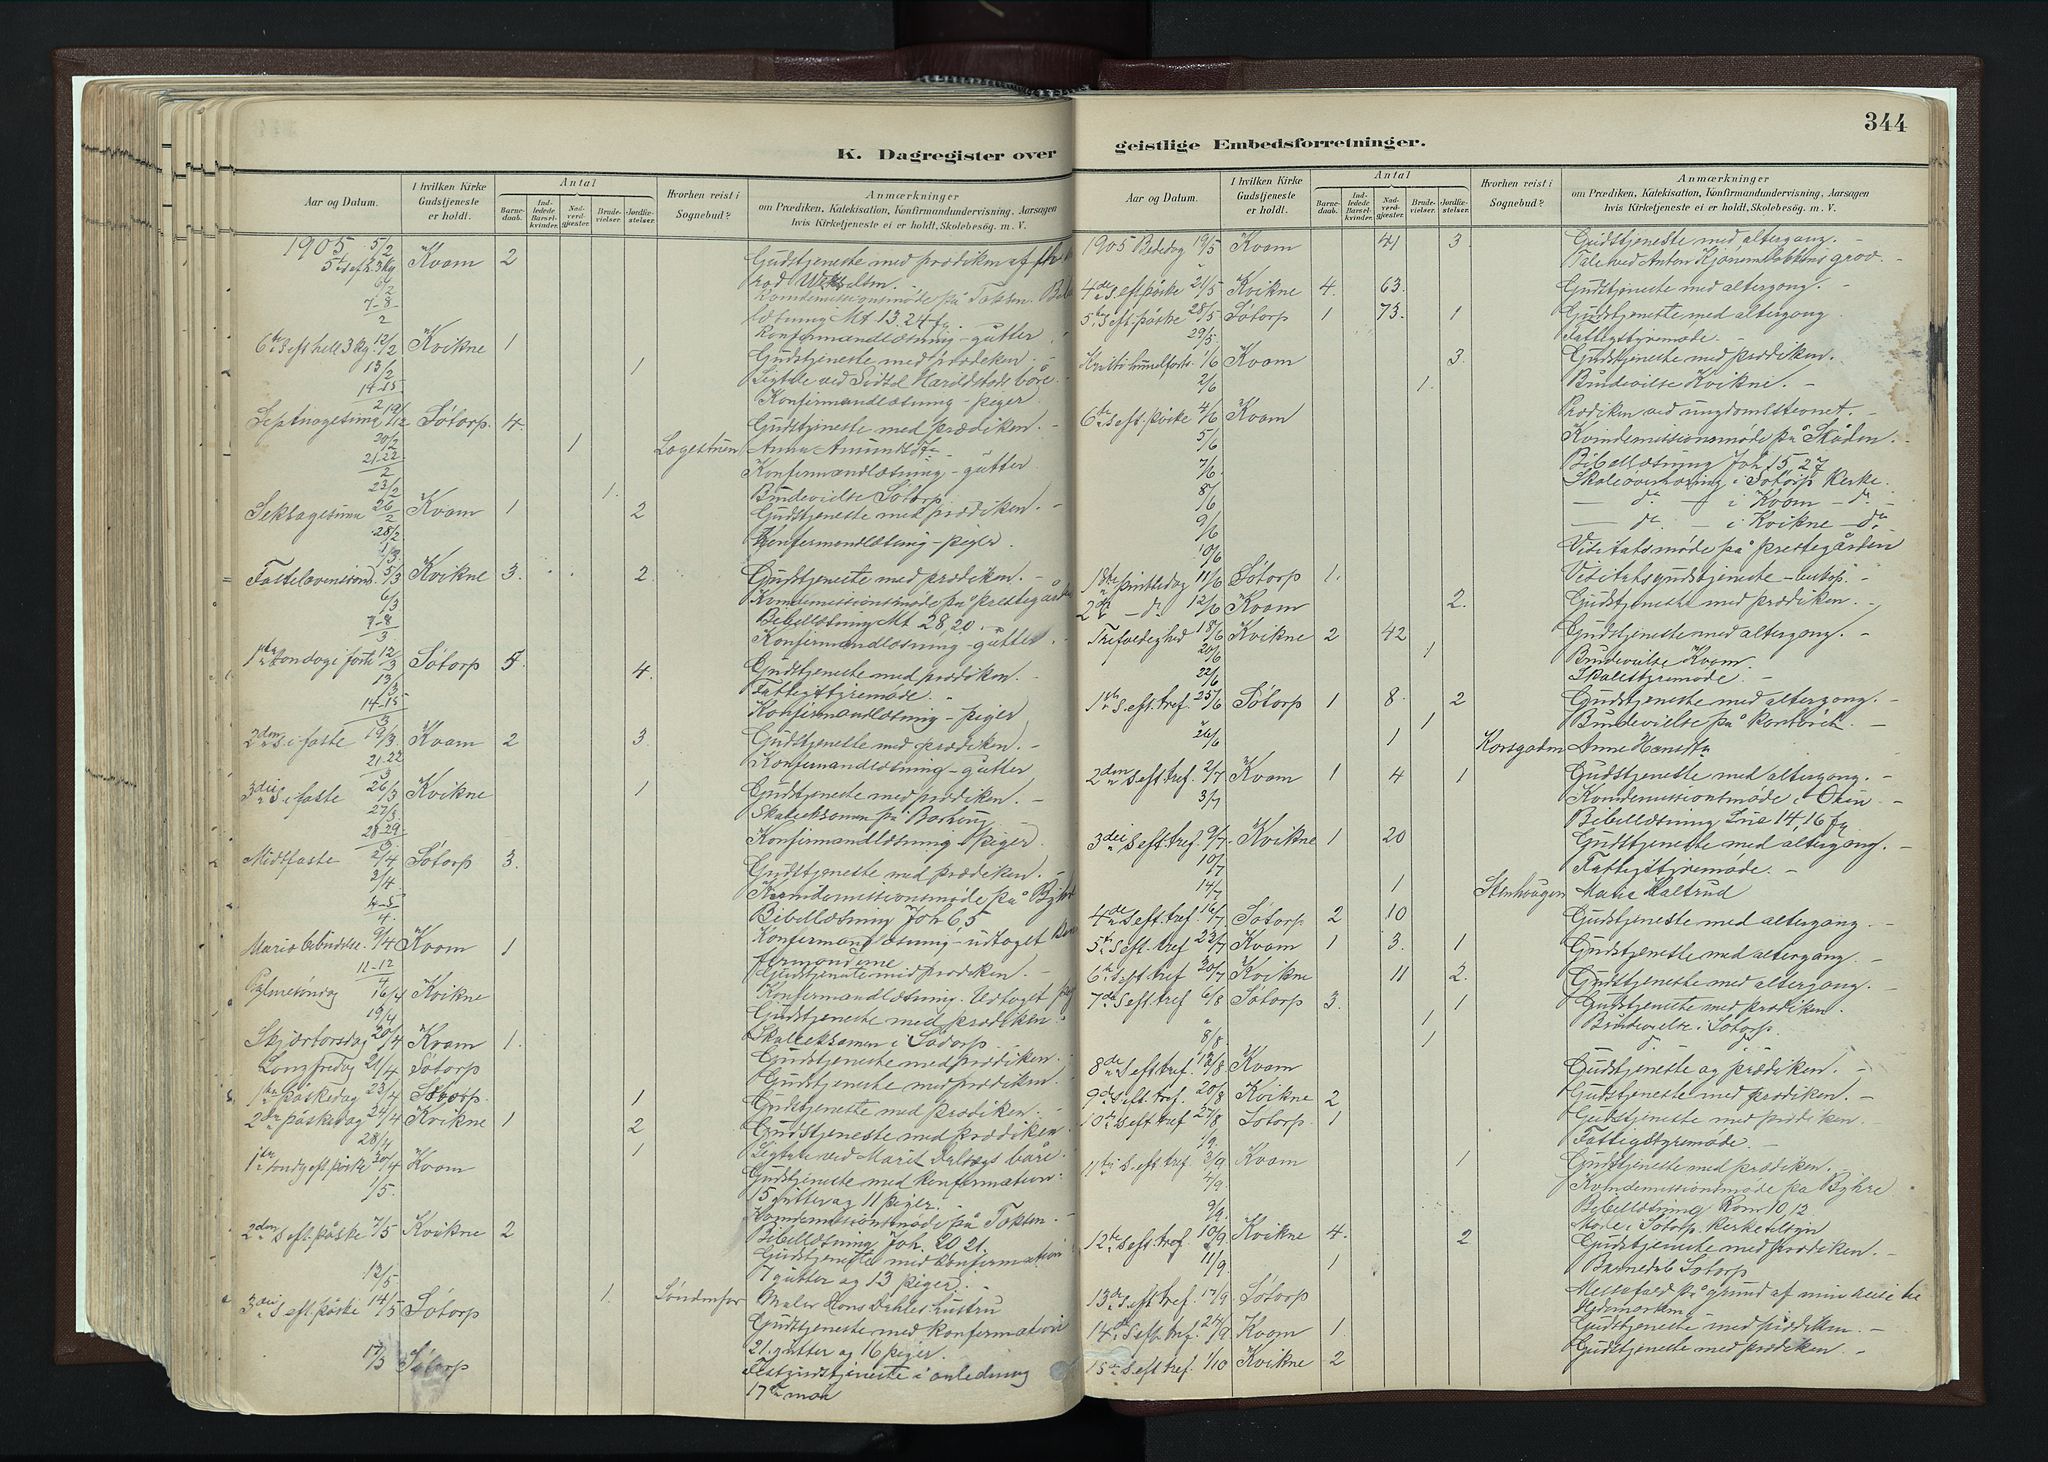 344
K. Dagregister over
geistlige Embedsforretninger.
Aar og Datum.
I hvilken Kirke Gudstjeneste er holdt.
Antal
Barnedaab.
Indledede Barselkvinder.
Nadverdgjester.
Brudevielser.
Jordfæstelser.
Hvorhen reist i Sognebud?
Anmærkninger
om Prædiken, Katekisation, Konfirmandundervisning, Aarsagen
hvis Kirketjeneste ei er holdt, Skolebesøg. m. V.
1905 5/2 Kvam 2 Gudstjeneste med prædiken af
Bibellæsning Mt. 13.24
Konfirmandlæsning - gutter
12/2 Kvikne 1 Gudstjeneste med prædiken.
13/2 1 Ligtale ved
14-15/2 Konfirmandlæsning - piger
Septuagesima 19/2 Sødorp 4. Gudstjeneste med prædiken. -
20/2 1 Anna
21-22/2 Konfirmandlæsning - gutter
23/2 1. Brudevielse Sødorp
Seksagesima 26/2 Kvam 1 2 Gudstjeneste med prædiken. -
28/2 Konfirmandlæsning - piger
Fastelavenssønd. 5/3 Kvikne 3. 2. Gudstjeneste med prædiken. -
6/3 Kvindemissionsmøde på prestegården
Bibellæsning Mt. 28,20.
7-8/3 Konfirmandlæsning - gutter
1ste søndag i faste 12/3 Sødorp 5 4. Gudstjeneste med prædiken. -
13/3 Fattigstyremøde. -
14-15/3 Konfirmandlæsning - piger
2den S. i faste 19/3 Kvam 2 3. Gudstjeneste med prædiken. -
21-22/3 Konfirmandlæsning - gutter
3die S. i faste 26/3 Kvikne 1 Gudstjeneste med prædiken. -
27/3 Skoleeksamen på
28-29/3 Konfirmandlæsning piger
Midtfaste 2/4 Sødorp 3. Gudstjeneste med prædiken.
3/4 Kvindemissionsmøde på
Bibellæsning Joh. 6,5
4-5/4 Konfirmandlæsning - udtaget
Maria bebudelse 9/4 Kvam 1 Gudstjeneste med prædiken. -
11-12/4 Konfirmandlæsning. Udtaget
Palmesøndag 16/4 Kvikne Gudstjeneste med prædiken
19/4 Skoleeksamen i Sødorp
Skjærtorsdag 20/4 Kvam 1. Gudstjeneste med prædiken.
Langfredag 21/4 Sødorp Gudstjeneste med prædiken.
1ste påskedag 23/4 Sødorp. 1 Gudstjeneste med prædiken. -
2den påskedag 24/4 Kvikne 1 2 Gudstjeneste med prædiken
28/4 1 Ligtale ved Marit båre -
1ste sønd. eft. påske 30/4 Kvam Gudstjeneste med konfirmation:
15 gutter og 11 piger. -
1/5. Kvindemissionsmøde på Toksen. -
Bibellæsning Joh. 20.21.
2den S. eft. påske 7/5 Kvikne 2 Gudstjeneste med konfirmation
7 gutter og 13 piger. -
12/5 1. Maler Hans Dahles hustru
3die S. eft. påske 14/5 Sødorp Gudstjeneste med konfirmation
21. gutter og 16 piger.
17/5 Sødorp Festgudstjeneste i anledning
17de mai
1905 Bededag 19/5 Kvam 41 3. Gudstjeneste med altergang. -
Tale ved Anton grav. -
4de S. eft. påske 21/5 Kvikne 4. 63. Gudstjeneste med altergang.
5te S. eft. påske 28/5 Sødorp 1 73. 1 Gudstjeneste med altergang
29/5 Fattigstyremøde. -
Kristi himmelfarts. 1/6 Kvam 3. Gudstjeneste med prædiken.
2/6 1. Brudevielse Kvikne. -
6te S. eft. påske 4/6 Kvam Prædiken ved ungdomsstevnet. -
5/6 Kvindemissionsmøde på -
Bibellæsning Joh. 15,27
7/6. Skoleoverhøring i Sødorp kirke.
8/6 — do — i Kvam — do —
9/6 — do — i Kvikne — do.
10/6 Visitatsmøde på prestegården
1ste pintsedag 11/6 Sødorp 1. Visitatsgudstjeneste - biskop. -
2den — do. 12/6 Kvam 2. Gudstjeneste med prædiken. -
Trefoldighed 18/6 Kvikne 2 42 Gudstjeneste med altergang. -
20/6 1 Brudevielse Kvam.
22/6 Skolestyremøde. -
1ste S. eft. tref. 25/6 Sødorp 1 8. 2 Gudstjeneste med altergang. -
1 Brudevielse på kontoret. -
26/6 1
2den S. eft. tref. 2/7 Kvam 1 4 1 Gudstjeneste med altergang. -
3/7 Kvindemissionsmøde i -
Bibellæsning Luc 14,16
3die S. eft. tref. 9/7. Kvikne 1 20 Gudstjeneste med altergang. -
10/7 Fattigstyremøde. -
14/7 1 Stenhaugen Marie
4de S. eft. tref. 16/7 Sødorp 2 10 Gudstjeneste med altergang. -
5te S. eft. tref. 23/7 Kvam 1 3. 1 Gudstjeneste med altergang. -
6te S. eft. tref 30/7 Kvikne 11 2. Gudstjeneste med altergang. -
7de S. eft. tref 6/8 Sødorp 3. 1 Gudstjeneste med prædiken.
" 1 Brudevielse i Sødorp.
8/8. 1
8de S. eft. tref. 13/8 Kvam Gudstjeneste og prædiken. -
9de S. eft. tref. 20/8 Kvikne 2 Gudstjeneste med prædiken. -
10de S. eft. tref 27/8 Sødorp 1 Gudstjeneste med prædiken.
1/9. Fattigstyremøde. -
11te S. eft. tref. 3/9 Kvam 1 Gudstjeneste med prædiken.
4/9 Kvindemissionsmøde på
Bibellæsning Rom 10,12
9/9. Møde i Sødorp kirketilsyn
12te S. eft. tref. 10/9 Kvikne 4. 2 Gudstjeneste med prædiken. -
11/9. 1 Barnedåb Sødorp
13de S. eft. tref. 17/9 Sødorp Messefald på grund af min reise til
14de S. eft. tref. 24/9 Kvam 1. Gudstjeneste med prædiken. -
15de S. eft. tref. 1/10 Kvikne 2 Gudstjeneste med prædiken -